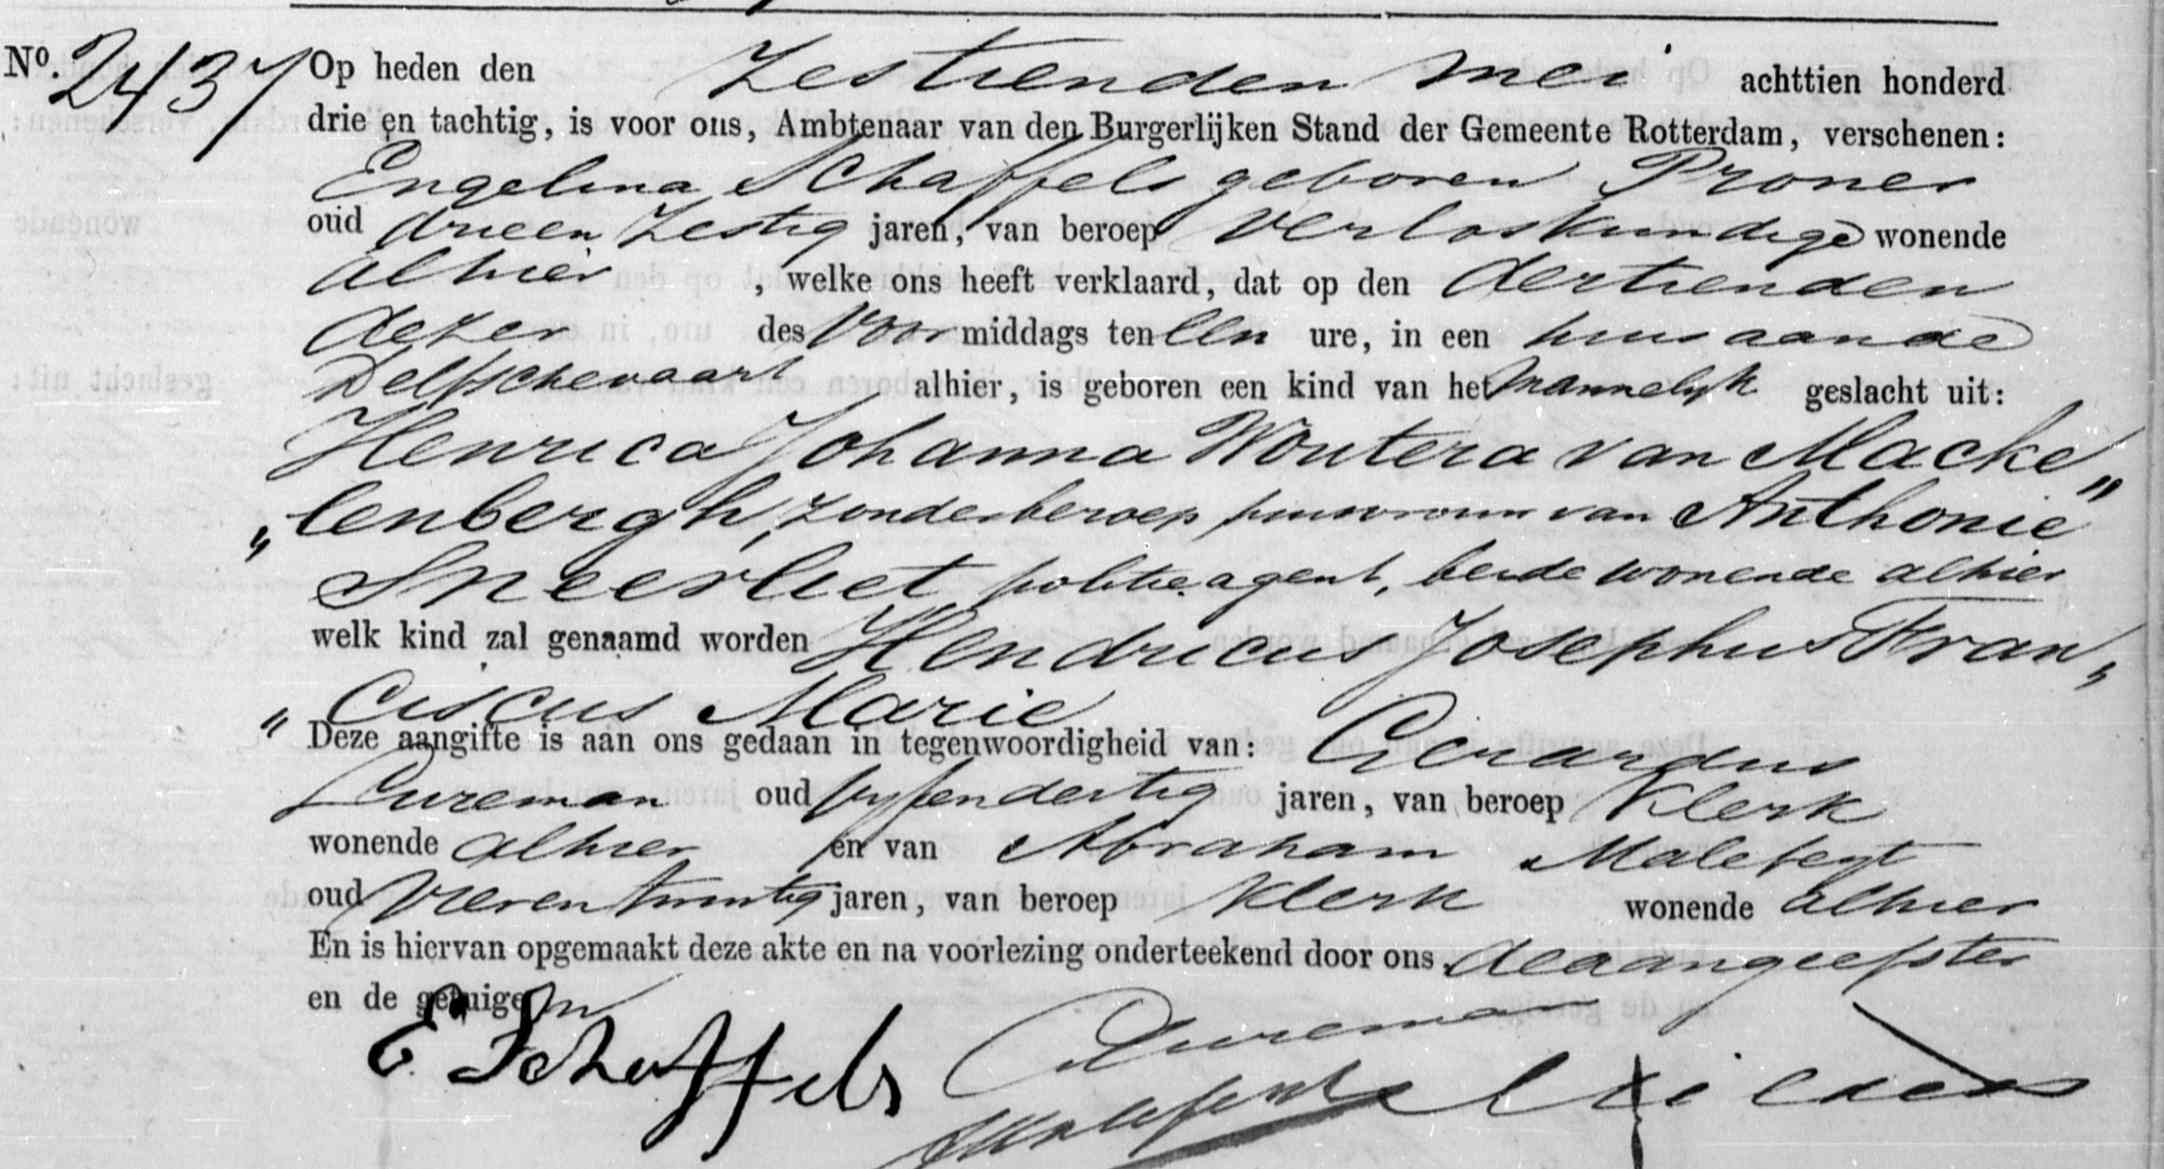 No. 2437 Op heden den Zestienden Mei achttien honderd
drie en tachtig, is voor ons, Ambtenaar van den Burgerlijken Stand der Gemeente Rotterdam, verschenen:
Engelina Schaffels geboren Proner
oud drieen Zestig jaren, van beroep Verloskundige wonende
alhier , welke ons heeft verklaard, dat op den dertienden
dezer des Voor middags ten Een ure, in een huis aan de
Delftschevaart alhier, is geboren een kind van het Mannelijk geslacht uit:
Henrica Johanna Woutera van Macke„
„lenbergh, zonder beroep, huisvrouw van Anthonie
Sneevliet politieagent, beide wonende alhier
welk kind zal genaamd worden Hendricus Josephus Fran„
„ciscus Marie
Deze aangifte is aan ons gedaan in tegenwoordigheid van: Gerardus
Bureman oud vyfendertig jaren, van beroep Klerk
wonende alhier en van Abraham Malefeyt
oud Vierentwintig jaren, van beroep Klerk wonende alhier
En is hiervan opgemaakt deze akte en na voorlezing onderteekend door ons, de aangeefster
en de getuigen
E Schaffels Bureman
AMalefeyt